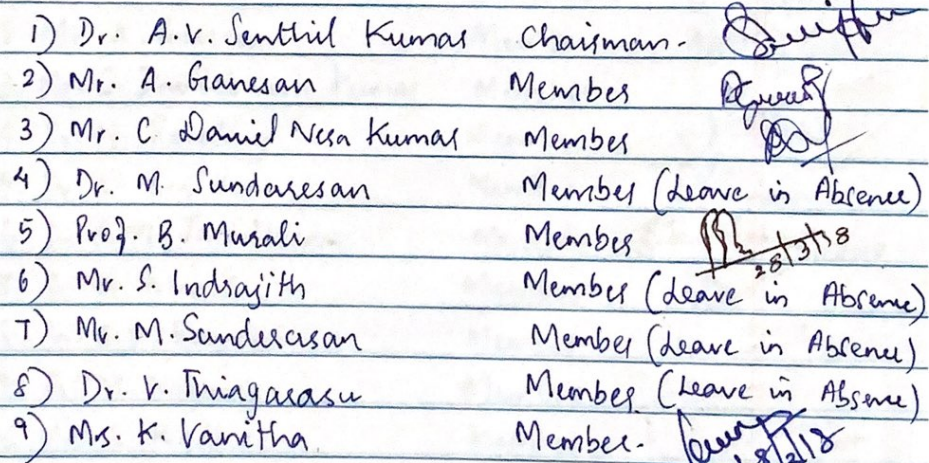 1) Dr. A.V. Senthil Kumar Chairman.
2) Mr. A. Ganesan Member
3) Mr. C. Daniel Nesa Kumar Member
4) Dr. M. Sundaresan Member (Leave in Absence)
5) Prof. B. Murali Member 28/3/18
6) Mr. S. Indrajith Member (Leave in Absence)
7) Mr. M. Sanderasan Member (Leave in Absence)
8) Dr. V. Thiagarasu Member (Leave in Absence)
9) Mrs. K. Vanitha Member.